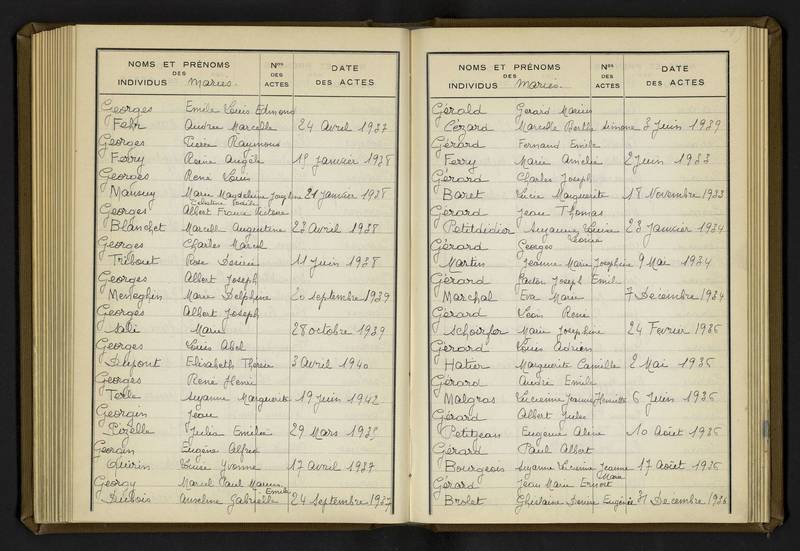 NOMS ET PRÉNOMS
DES
INDIVIDUS Mariés.
Nos
DES
ACTES
DATE
DES ACTES
Georges Emile Louis Edmond
Fehr Andrée Marcelle 24 Avril 1937
Georges Pierre Raymond
Ferry Reine Angèle 15 Janvier 1938
Georges René Louis
Mansuy Marie Magdeleine Joséphine 21 Janvier 1938
Georges Albert France Victoire
Blanchet Marcelle Augustine 23 Avril 1938
Georges Charles Marcel
Tribout Rose Désirée 11 Juin 1938
Georges Albert Joseph
Meneghin Marie Delphine 20 Septembre 1939
Georges Albert Joseph
Marie 28 octobre 1939
Georges Louis Abel
Dupont Elisabeth Thérèse 3 Avril 1940
Georges René Henri
Suzanne Marguerite 19 Juin 1942
Georgin Jean
Pizelle Julia Emilie 29 Mars 1935
Georgin Eugène Alfred
Quirin Louise Yvonne 17 Avril 1937
Georgy Marcel Paul Maurice Emile
Dubois Anselme Gabrielle 24 Septembre 1937
NOMS ET PRÉNOMS
DES
INDIVIDUS Mariés.
Nos
DES
ACTES
DATE
DES ACTES
Gérald Gérard Marius
Cézard Marcelle Berthe Simone 3 Juin 1939
Gérard Fernand Emile
Ferry Marie Amélie 2 Juin 1933
Gérard Charles Joseph
Baret Lucie Marguerite 18 Novembre 1933
Gérard Jean Thomas
Petitdidier Suzanne Louise 23 Janvier 1934
Gérard Georges Louis
Martin Jeanne Marie Joséphine 9 Mai 1934
Gérard Gaston Joseph Emile
Marchal Eva Marie 7 Décembre 1934
Gérard Léon René
Marie Joséphine 24 Février 1936
Gérard Louis Adrien
Hatier Marguerite Camille 2 Mai 1936
Gérard André Emile
Malgras Lucienne Jeanne Henriette 6 Juin 1936
Gérard Albert Jules
Petitjean Eugénie Aline 10 Août 1936
Gérard Paul Albert
Bourgeois Suzanne Lucienne Jeanne Marie 17 Août 1936
Gérard Jean Marie Ernest
Brolet Ghislaine Denise Eugénie 31 Décembre 1936